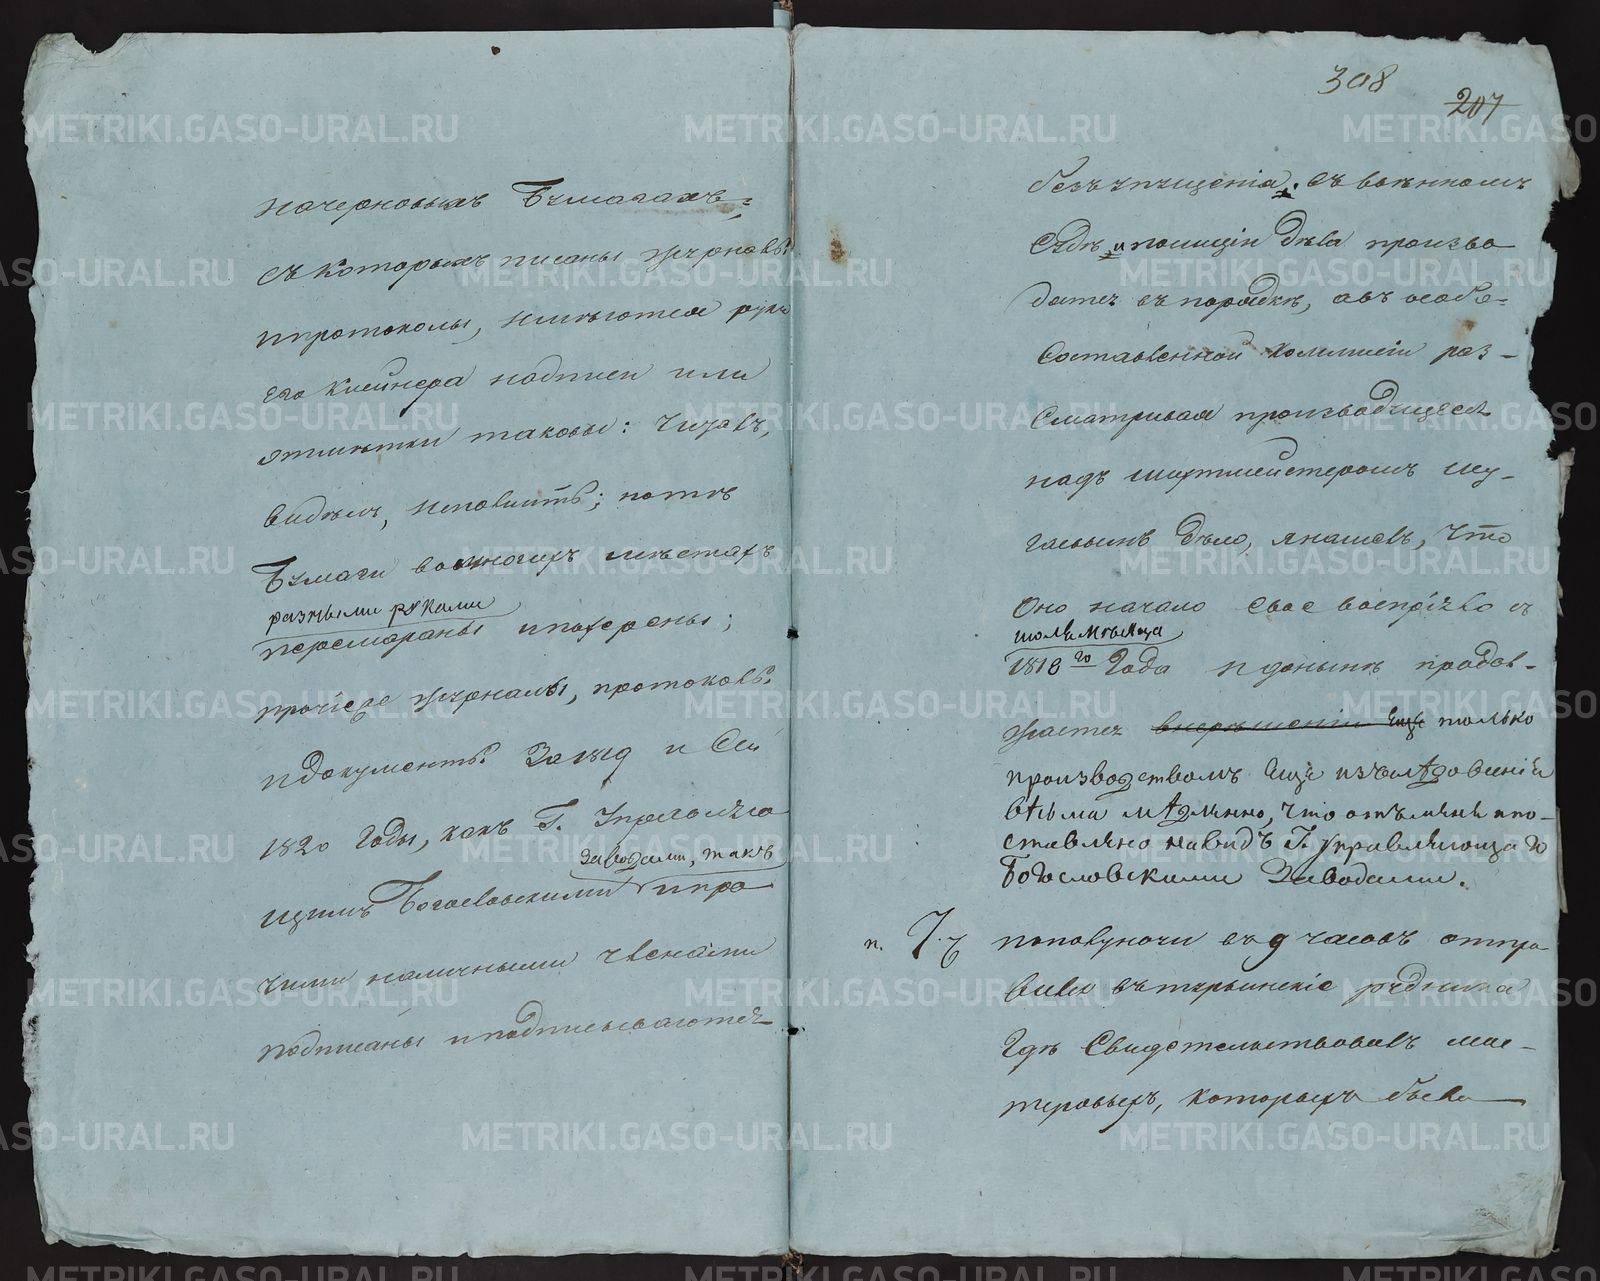 308
207
начерновыхъ Бумагахъ,
съ которыхъ писаны журналы
ипротоколы, неимѣются руки
его Клейнера надписи или
отмѣтки таковы: Читалъ,
видѣлъ, исполнить; потомъ
Бумаги вомногихъ мѣстахъ
разными руками
перемараны ипочерены;
прочіе же журналы, протоколы
идокументы За 1819 и Сей
1820 годы, какъ Г. Управляю
щимъ Богословскими Заводами, такъ ипро
чими наличными членами
подписаны иподписываются
безъ упущенія. Съ военномъ
Судѣ и полиціи дѣла произво
дятся въ порядкѣ, авъ особо
Составленной Коммисіи раз-
Сматривая производящееся
надъ шихтмейстеромъ
дѣло, янашелъ, что
Оно начало свое воспріяло съ
іюля мѣсяца
1818го Года идонынѣ продол-
жается внерѣшеніи еще только
производствомъ еще изслѣдованія
весьма мѣдленно, что отъ меня ипо-
ставлено навидъ Г. управляющаго
Богословскими Заводами.
п. 7.
пополуночи въ 9 часовъ отпра
вился втурьинскіе рудники
Гдѣ Свидетельствовалъ мас-
теровыхъ, которыхъ было